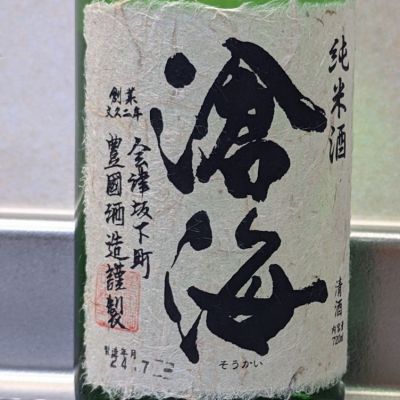 純米酒
清酒
内容量
720ml
滄海
そうかい
創業
文久二年
会津坂下町
豊國酒造謹製
製造年月
24.7